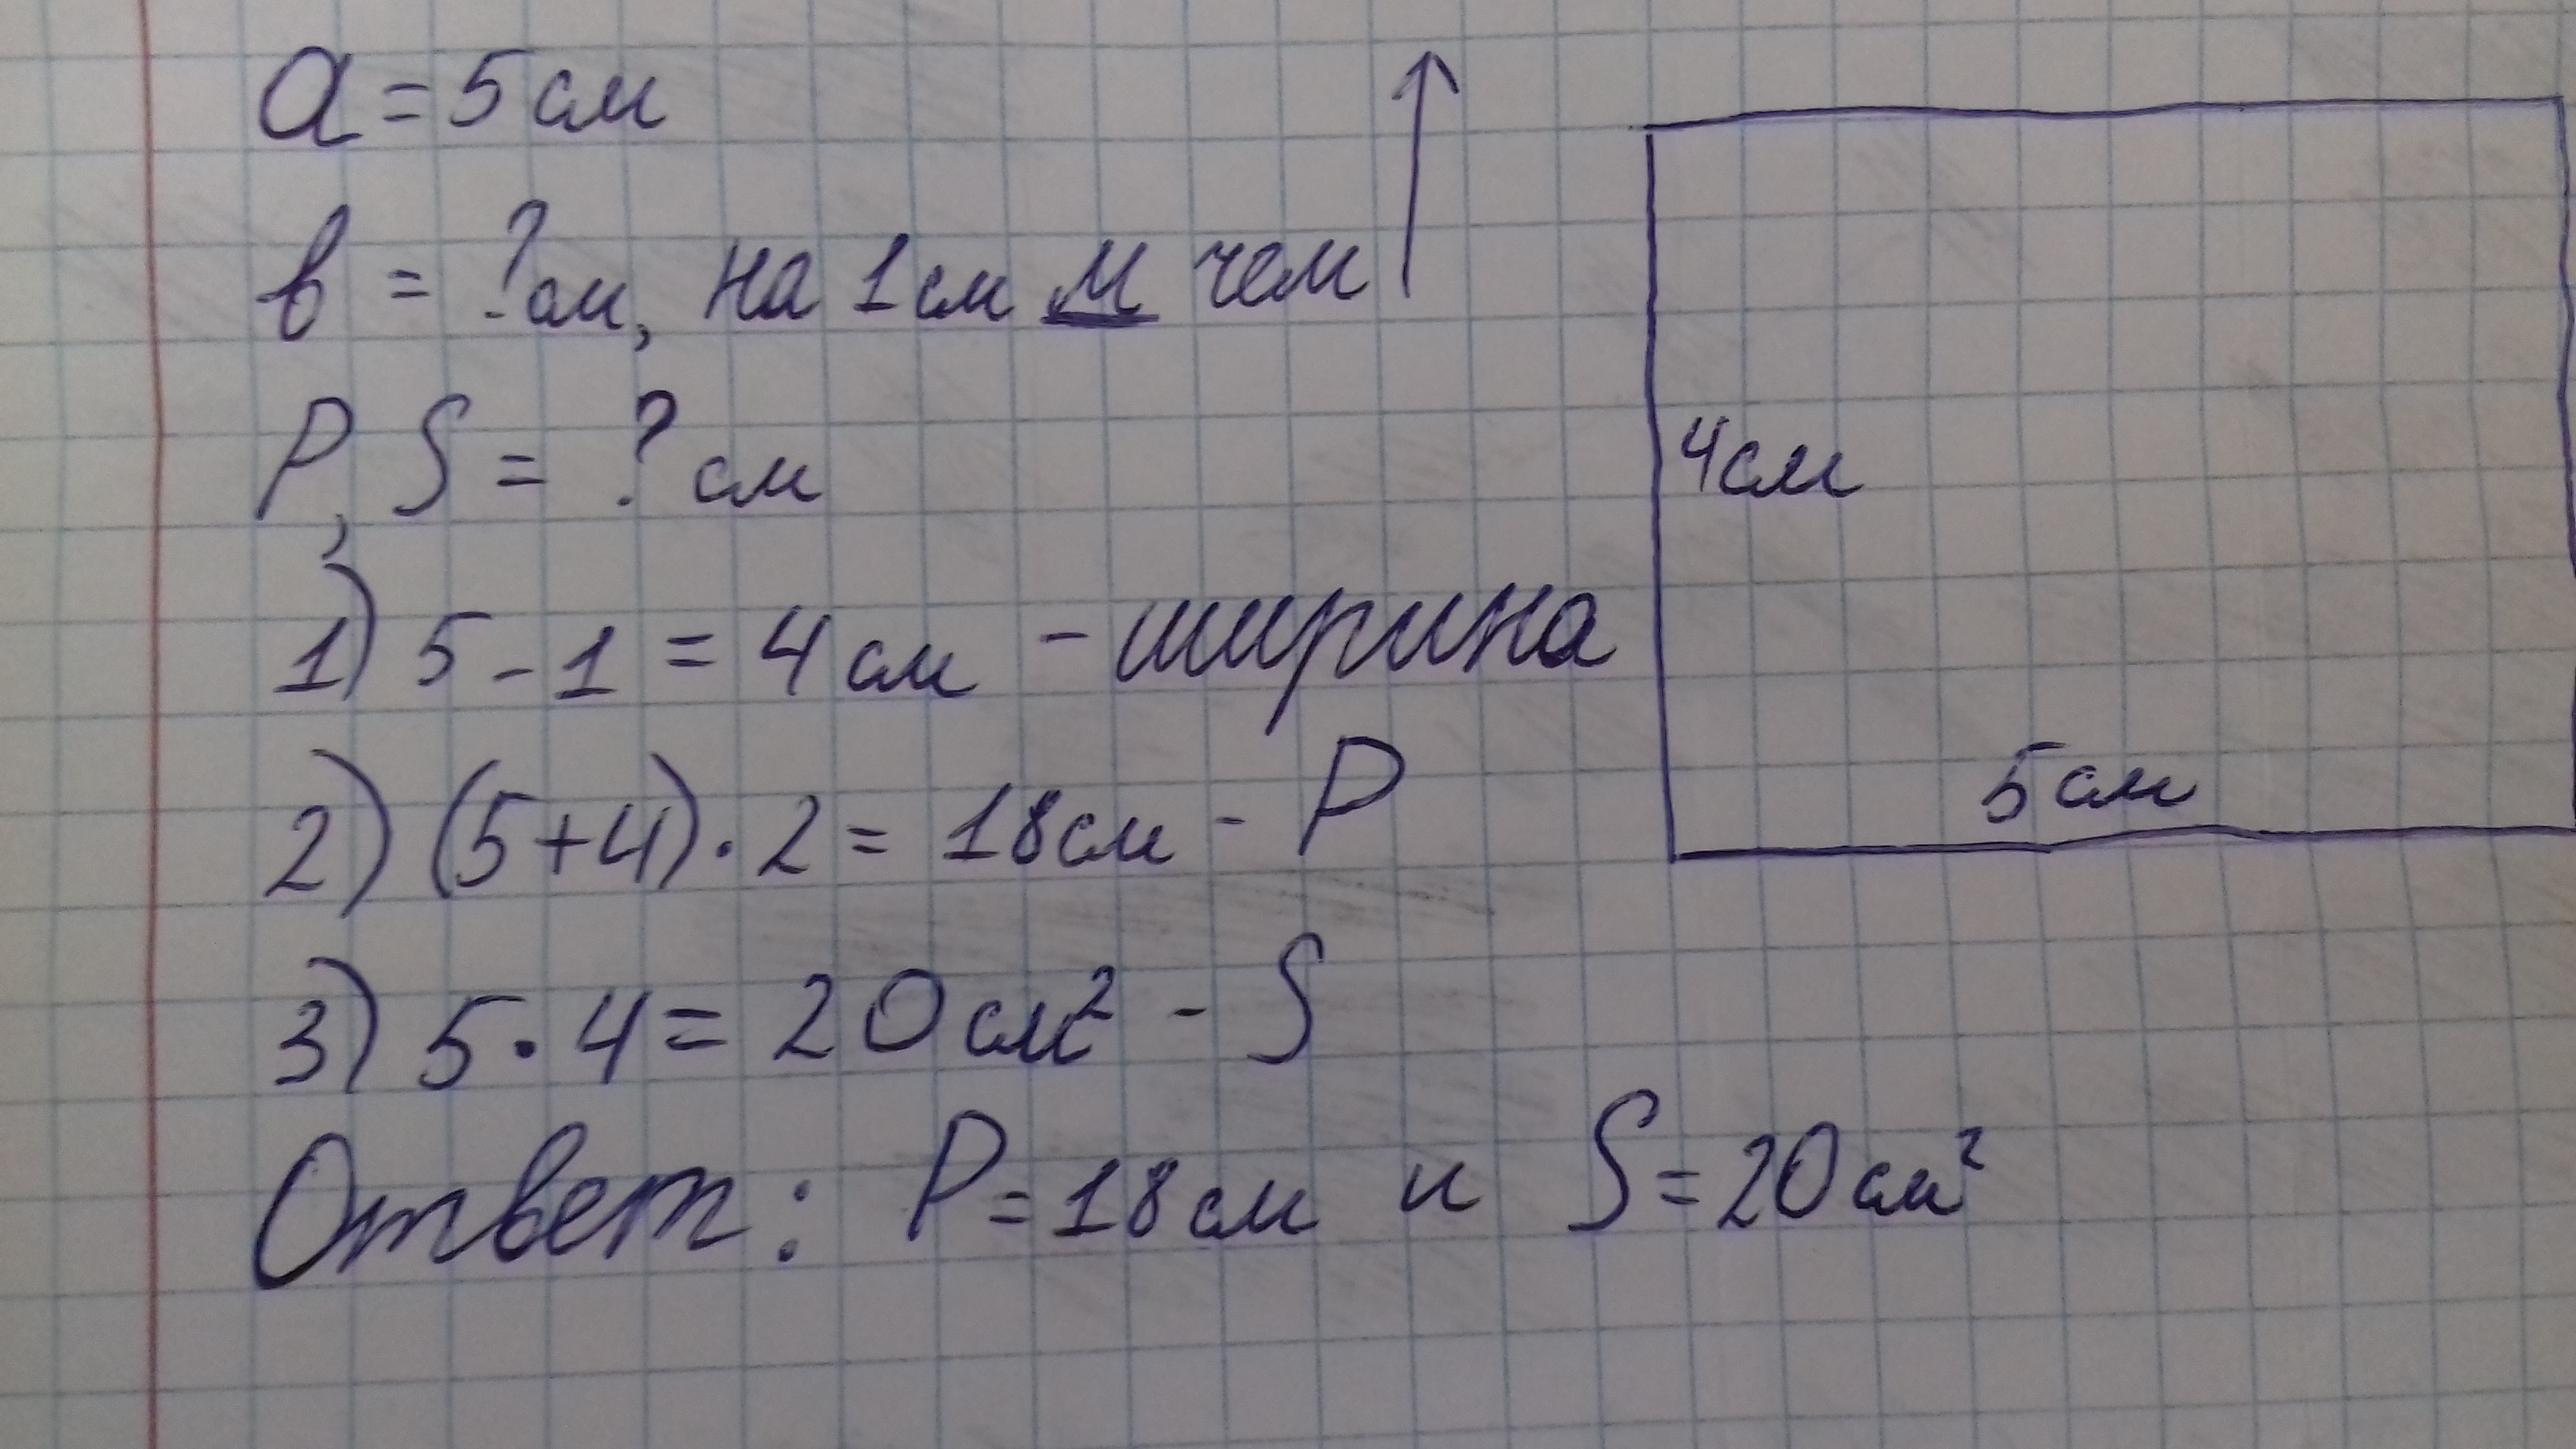 a = 5 см
в = ? см, на 1 см М чем
P, S = ? см
1) 5 - 1 = 4 см - ширина
2) (5 + 4) · 2 = 18 см - P
3) 5 · 4 = 20 см² - S
Ответ: P = 18 см и S = 20 см²
4 см
5 см